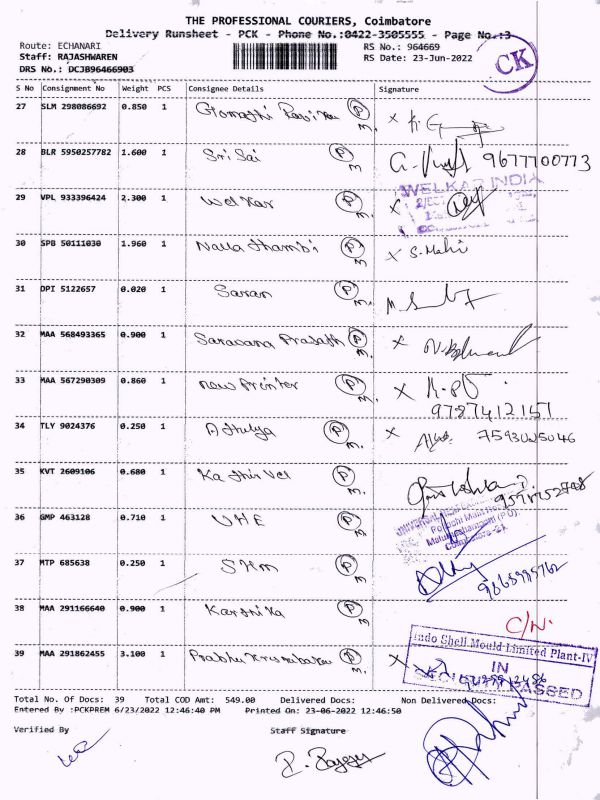 THE PROFESSIONAL COURIERS, Coimbatore
Delivery Runsheet - PCK - Phone No.:0422-3505555 - Page No.:3
Route: ECHANARI RS No.: 964669
Staff: RAJASHWAREN RS Date: 23-Jun-2022
DRS No.: DCJB96466903
CK
S No Consignment No Weight PCS Consignee Details Signature
27 SLM 298086692 0.850 1 P M.
28 BLR 5950257782 1.600 1 Sri Sai P M 9677700773
29 VPL 933396424 2.300 1 Welkar P M. x
WELKAR INDIA
30 SPB 50111030 1.960 1 Nalla thambi P M x S. Mahi
31 DPI 5122657 0.020 1 Saran P M.
32 MAA 568493365 0.900 1 Saravana Prasath P M. x
33 MAA 567290309 0.860 1 new Printer P M. x
9787412157
34 TLY 9024376 0.250 1 Athulya P M. x 7593025046
35 KVT 2609106 0.680 1 Kathir Vel P M.
36 GMP 463128 0.710 1 UHE P M
Coimbatore-21.
37 MTP 685638 0.250 1 SHM P M
38 MAA 291166640 0.900 1 Karthika P M
C/N.
39 MAA 291862455 3.100 1 P M. x
Indo Shell Mould Limited Plant-IV
IN
PASSED
Total No. Of Docs: 39 Total COD Amt: 549.00 Delivered Docs: Non Delivered Docs:
Entered By :PCKPREM 6/23/2022 12:46:40 PM Printed On: 23-06-2022 12:46:50
Verified By Staff Signature